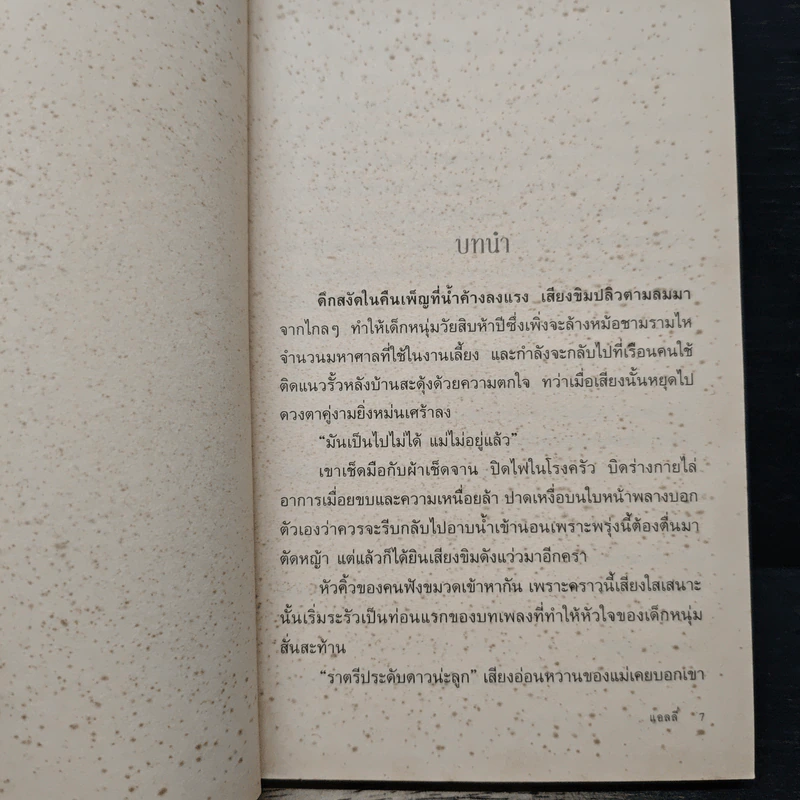 บทนำ
ดึกสงัดในคืนเพ็ญที่น้ำค้างลงแรง เสียงขิมปลิวตามลมมา
จากไกลๆ ทำให้เด็กหนุ่มวัยสิบห้าปีซึ่งเพิ่งจะล้างหม้อชามรามไห
จำนวนมหาศาลที่ใช้ในงานเลี้ยง และกำลังจะกลับไปที่เรือนคนใช้
ติดแนวรั้วหลังบ้านสะดุ้งด้วยความตกใจ ทว่าเมื่อเสียงนั้นหยุดไป
ดวงตาคู่งามยิ่งหม่นเศร้าลง
“มันเป็นไปไม่ได้ แม่ไม่อยู่แล้ว”
เขาเช็ดมือกับผ้าเช็ดจาน ปิดไฟในโรงครัว บิดร่างกายไล่
อาการเมื่อยขบและความเหนื่อยล้า ปาดเหงื่อบนใบหน้าพลางบอก
ตัวเองว่าควรจะรีบกลับไปอาบน้ำเข้านอนเพราะพรุ่งนี้ต้องตื่นมา
ตัดหญ้า แต่แล้วก็ได้ยินเสียงขิมดังแว่วมาอีกครา
หัวคิ้วของคนฟังขมวดเข้าหากัน เพราะคราวนี้เสียงใสเสนาะ
นั้นเริ่มระรัวเป็นท่อนแรกของบทเพลงที่ทำให้หัวใจของเด็กหนุ่ม
สั่นสะท้าน
“ราตรีประดับดาวน่ะลูก” เสียงอ่อนหวานของแม่เคยบอกเขา
แอลลี่ 7